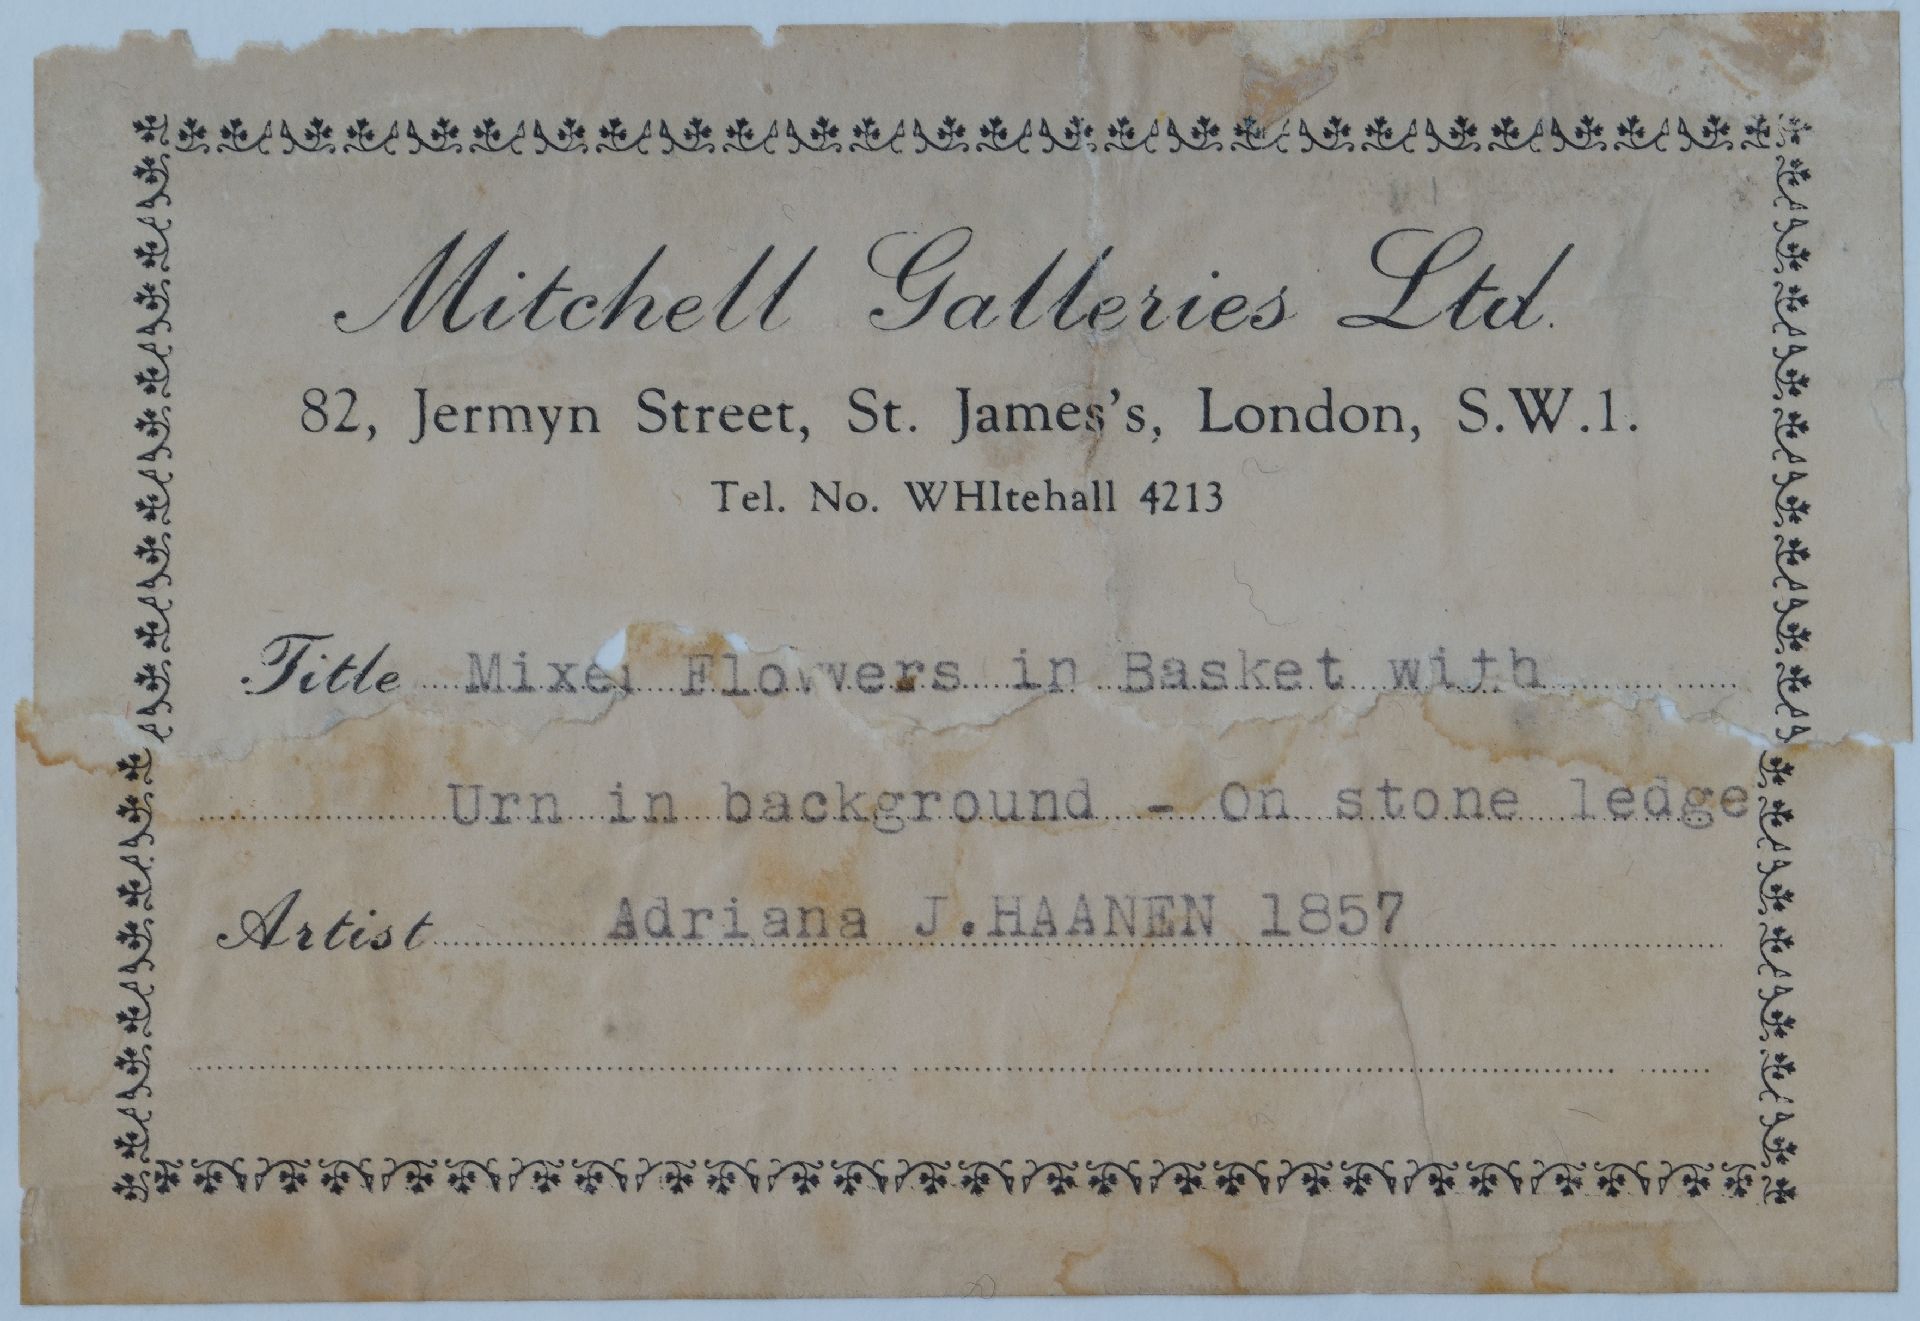 Mitchell Galleries Ltd.
82, Jermyn Street, St. James's, London, S.W.1.
Tel. No. WHItehall 4213
Title Mixed Flowers in Basket with
Urn in background - On stone ledge
Artist Adriana J.HAANEN 1857